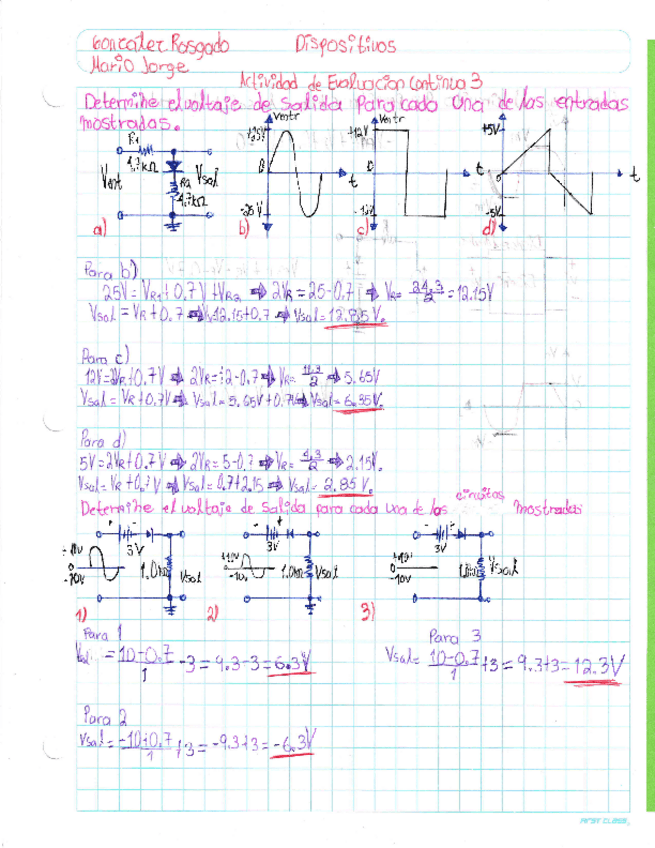 González Rosgado Dispositivos
Mario Jorge
Actividad de Evaluación Continua 3
Determine el voltaje de salida para cada una de las entradas
mostradas.
R1
4.7kΩ
Vent
R2
4.7kΩ
Vsal
a)
Ventr
+25V
0
t
-25V
b)
Ventr
+12V
0
t
-12V
c)
+5V
0
t
-5V
d)
Para b)
25V=VR1+0.7V+VR2 ⇒ 2VR=25-0.7 ⇒ VR= 24.3/2 = 12.15V
Vsal=VR+0.7 ⇒ 12.15+0.7 ⇒ Vsal=12.85V.
Para c)
12V=2VR+0.7V ⇒ 2VR=12-0.7 ⇒ VR= 11.3/2 ⇒ 5.65V
Vsal=VR+0.7V ⇒ Vsal=5.65V+0.7V ⇒ Vsal=6.35V.
Para d)
5V=2VR+0.7V ⇒ 2VR=5-0.7 ⇒ VR= 4.3/2 ⇒ 2.15V.
Vsal=VR+0.7V ⇒ Vsal=0.7+2.15 ⇒ Vsal=2.85V.
Determine el voltaje de salida para cada una de los circuitos mostradas
- +
3V
-10V
1.0kΩ
Vsal
1)
3V
1.0kΩ
Vsal
2)
3V
-10V
Vsal
3)
Para 1
= 10-0.7/1 -3 = 9.3-3 = 6.3V
Para 3
Vsal= 10-0.7/1 +3 = 9.3+3 = 12.3V
Para 2
Vsal= -10+0.7/1 +3 = -9.3+3 = -6.3V
FIRST CLASS